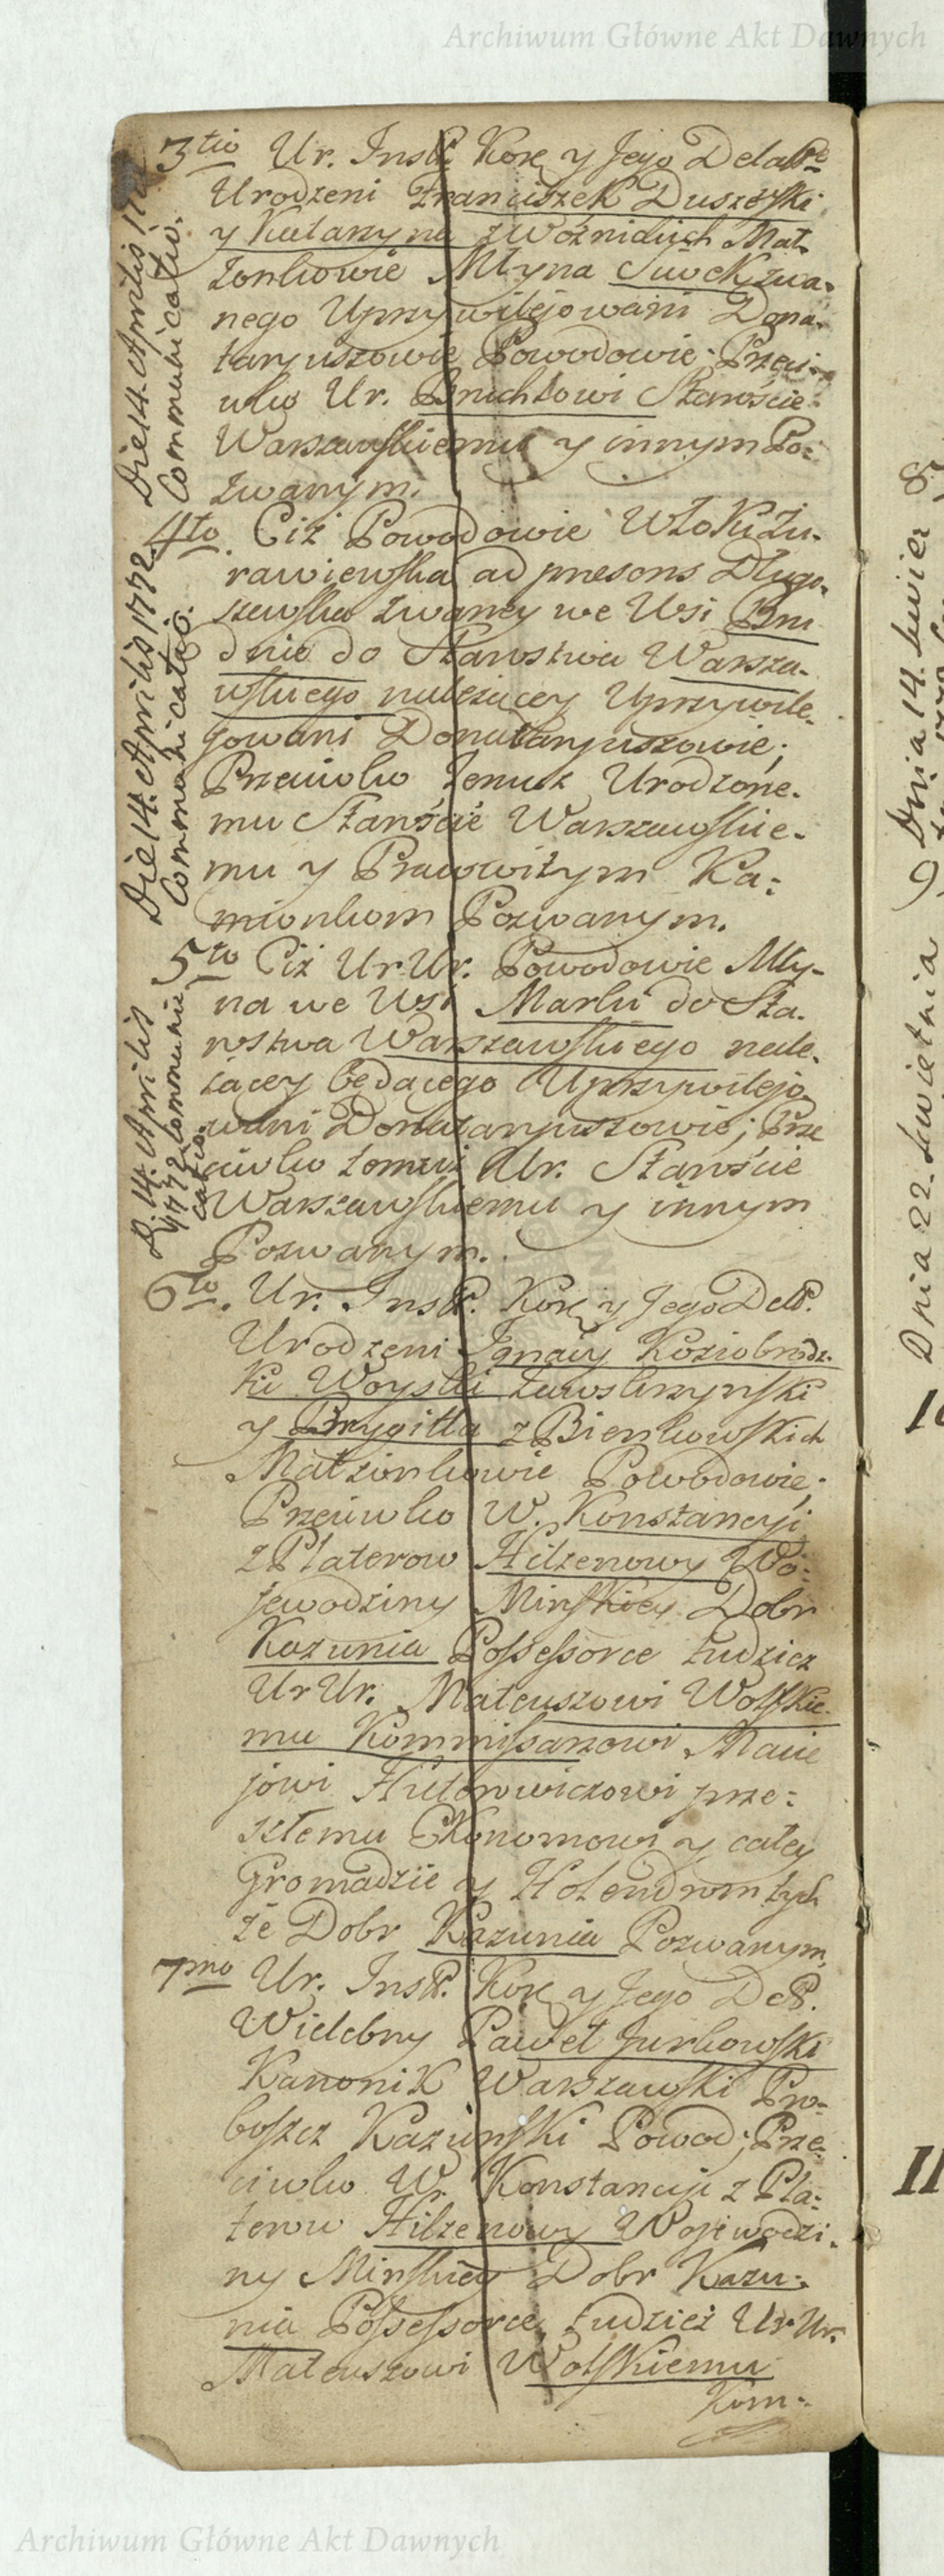 Archiwum Główne Akt Dawnych
3tio Ur. Inst. Kor. y Jego Delat.
Urodzeni Franciszek Duszeyski
y Katarzyna z Woźnickich Mał-
żonkowie Młyna Siwek zwa-
nego Uprzywilejowani Dona-
taryuszowie Powodowie; Przeci-
wko Ur. Bruchlowi Staroście
Warszawskiemu y innym Po-
zwanym.
Die 14. Aprilis 1772
Communicatio.
4to. Ciż Powodowie Włoki Żu-
rawiewska ad presens Długo-
szewska zwaney we Wsi Bru
dnie do Starostwa Warsza-
wskiego należącey Uprzywile-
gowani Donataryuszowie;
Przeciwko temuż Urodzone-
mu Staroście Warszawskie-
mu y Pracowitym Ka-
mionkom Pozwanym.
Die 14. Aprilis 1772.
Communicatio.
5to Ciż Ur Ur. Powodowie Mły-
na we Wsi Marki do Sta-
rostwa Warszawskiego nale-
żącey będącego Uprzywilejo-
wani Donataryuszowie; Prze
ciwko temuż Ur. Staroście
Warszawskiemu y innym
Pozwanym.
D. 14. Aprilis
1772 Communi
catio.
6to. Ur. Inst. Kor. y Jego Del.
Urodzeni Ignacy Koziobrodz-
ki Woyski Zawskrzynski
y Brygitta z Bienkowskich
Małżonkowie Powodowie;
Przeciwko W. Konstancyi
z Platerow Hilzenowy Wo-
jewodziny Minskiey Dobr
Kazunia Possessorce tudzież
Ur Ur. Mateuszowi Wolskie-
mu Kommissarzowi Macie
jowi prze-
szłemu Ekonomowi y całey
Gromadzie y Holendrom tych
że Dobr Kazunia Pozwanym,
7mo Ur. Inst. Kor. y Jego Del.
Wielebny Paweł Jurkowski
Kanonik Warszawski Pro-
boszcz Kazunski Powod; Prze-
ciwko W. Konstancyi z Pla-
terow Hilzenowy Wojewodzi-
ny Minskiey Dobr Kazu-
nia Possessorce, tudzież Ur Ur.
Mateuszowi Wolskiemu
Kom-
8
9 Dnia 14. Kwie
Dnia 22. Kwietnia
10
11
Archiwum Główne Akt Dawnych